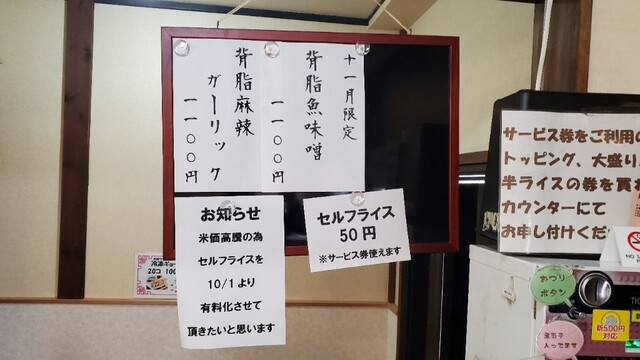 十一月限定
背脂魚味噌
一一〇〇円
背脂麻辣
ガーリック
一一〇〇円
お知らせ
米価高騰の為
セルフライスを
10/1より
有料化させて
頂きたいと思います
セルフライス
50円
※サービス券使えます
サービス券をご利用の
トッピング、大盛り
半ライスの券を買
カウンターにて
お申し付けくだ
おつり
ボタン
新500円
対応
入ってます
冷凍ギョー
20コ 100
NO S